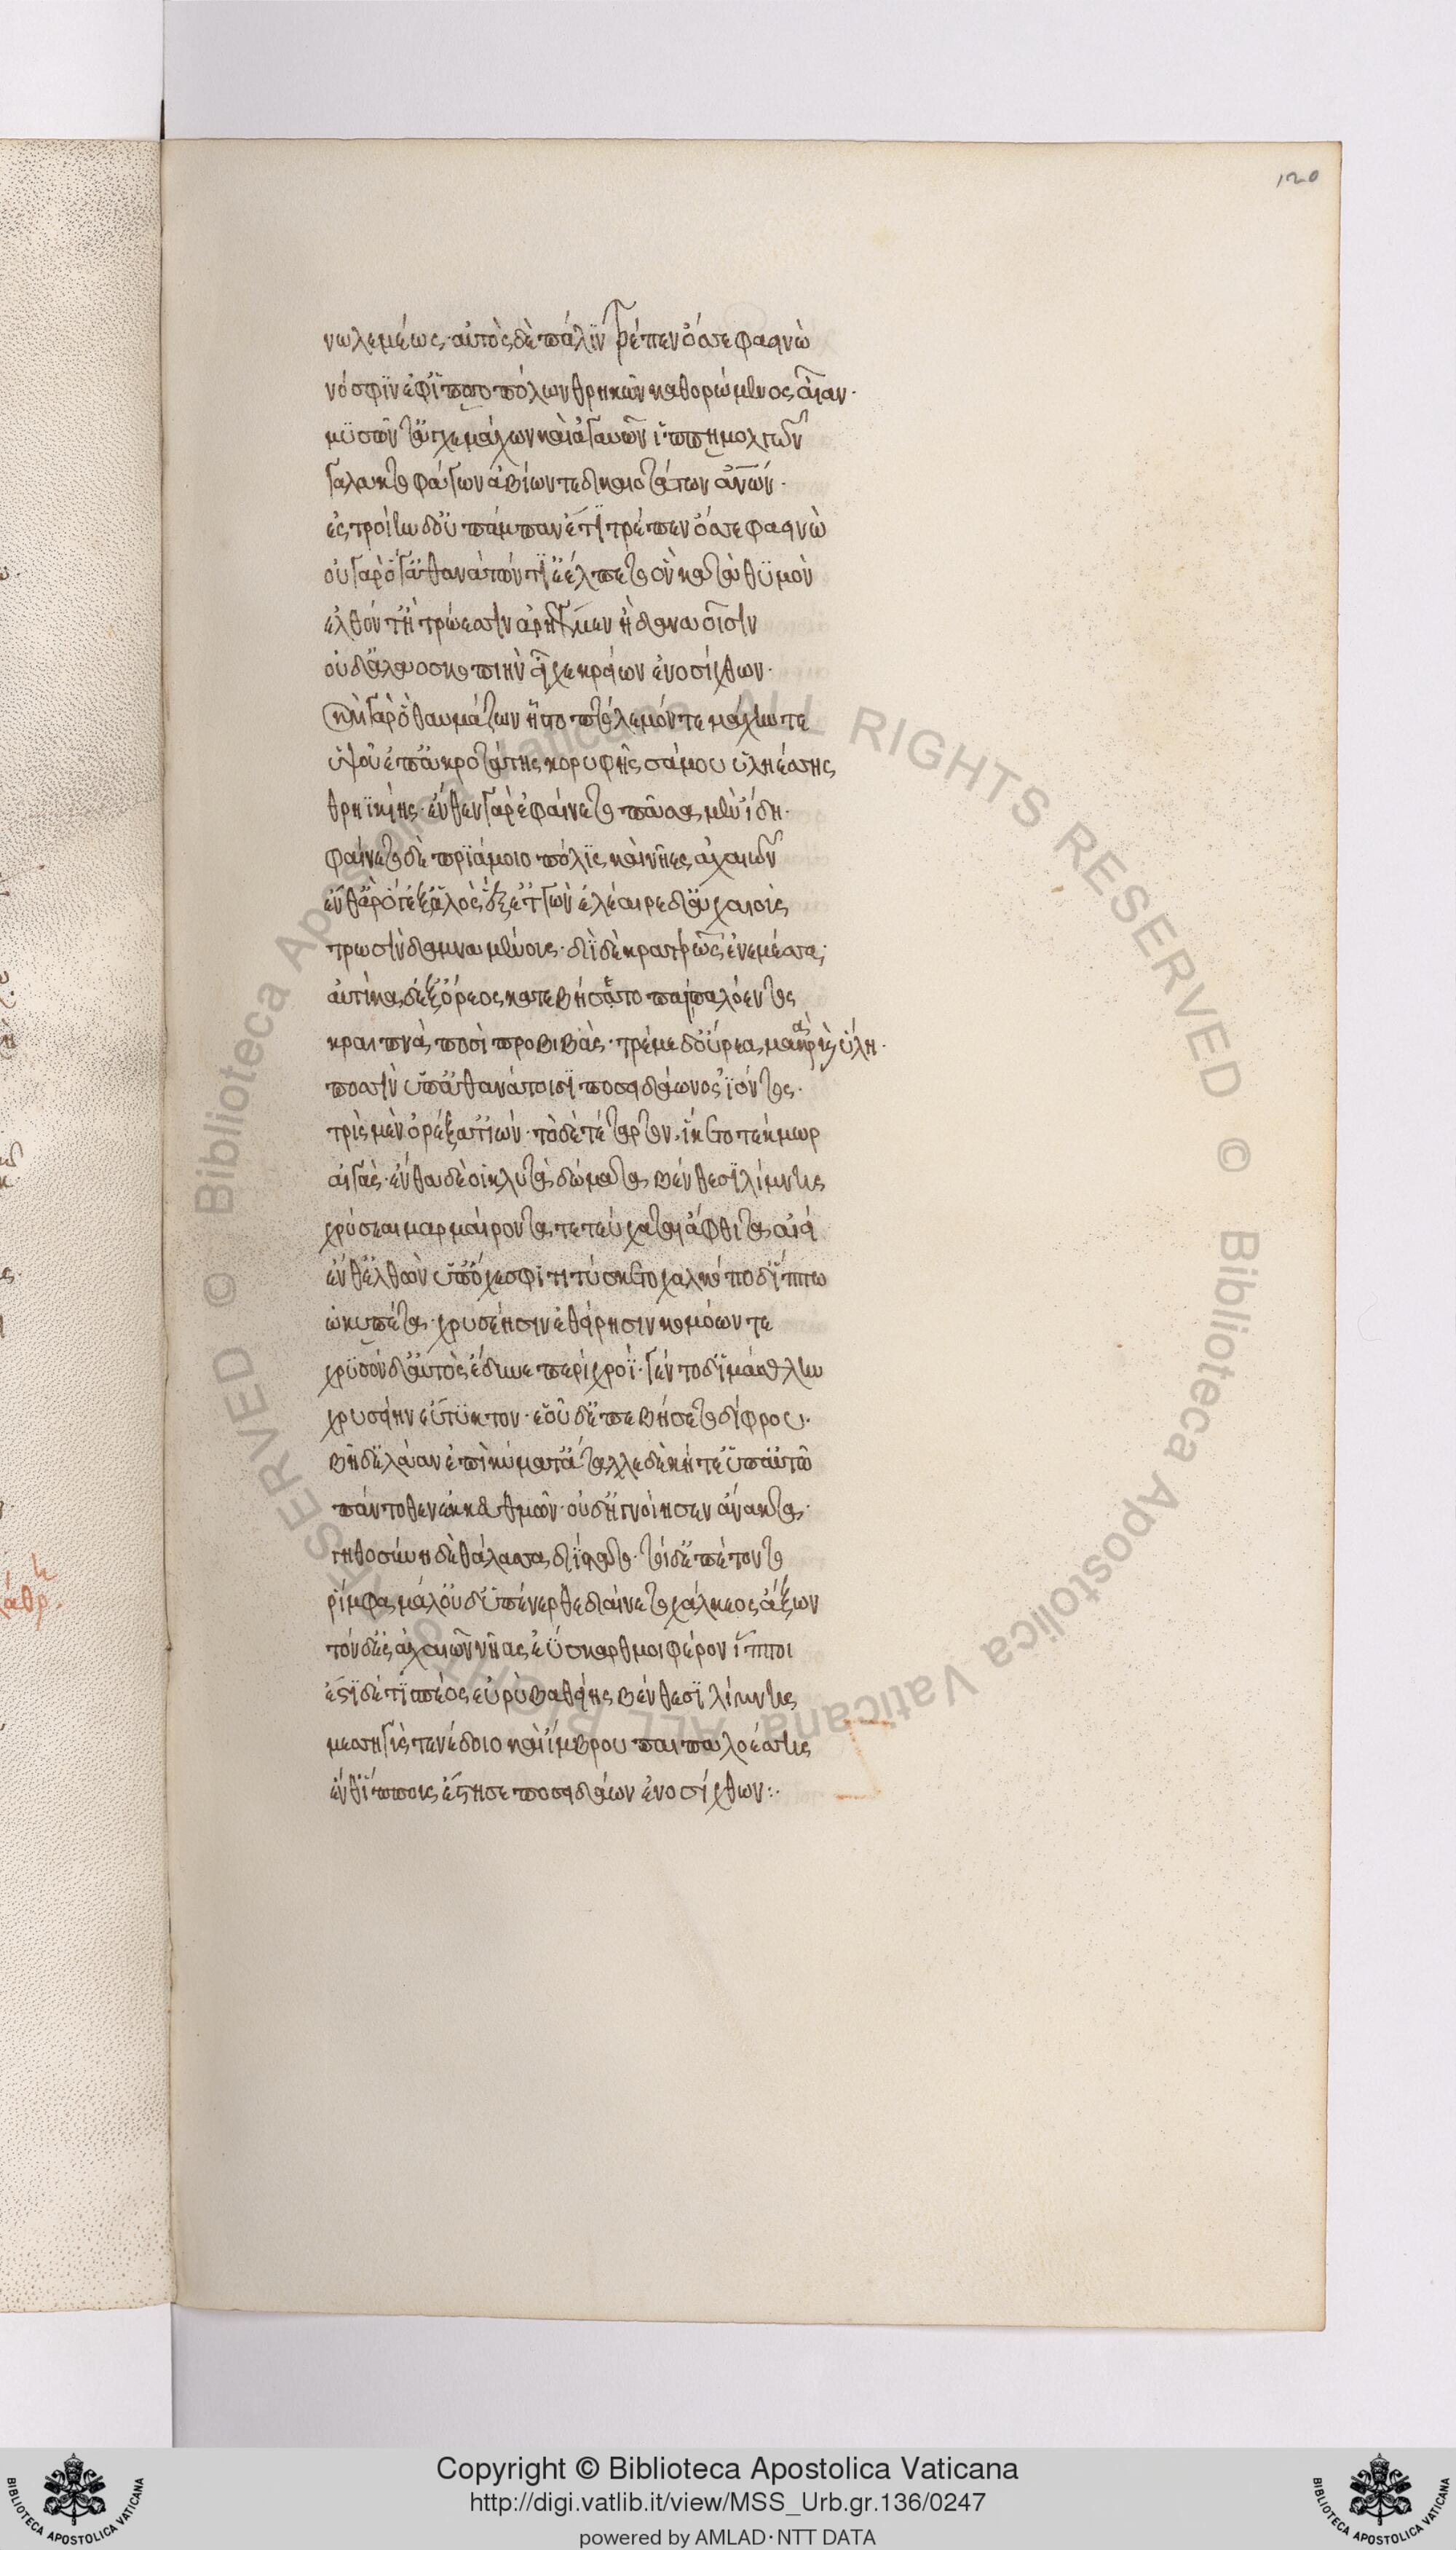 120
νωλεμέως· αὐτὸς δὲ πάλιν τρέπεν ὄσσε φαεινὼ
νόσφιν ἐφ' ἱπποπόλων θρῃκῶν καθορώμενος αἶαν·
μυσῶν τ' ἀγχεμάχων καὶ ἀγαυῶν ἱππημολγῶν
γαλακτοφάγων ἀβίων τε δικαιοτάτων ἀνων·
ἐς τροίην δ' οὐ πάμπαν ἔτι τρέπεν ὄσσε φαεινὼ
οὐ γὰρ ὅγ' ἀθανάτων τιν' ἐέλπετο ὃν κατὰ θυμὸν
ἐλθόντ' ἢ τρώεσσιν ἀρηξέμεν ἢ δαναοῖσιν
οὐδ' ἀλαοσκοπιὴν εἶχε κρείων ἐνοσίχθων·
καὶ γὰρ ὃ θαυμάζων ἧστο πτόλεμόν τε μάχην τε
ὑψοῦ ἐπ' ἀκροτάτης κορυφῆς σάμου ὑληέσσης
θρηϊκίης· ἔνθεν γὰρ ἐφαίνετο πᾶσα μὲν ἴδη·
φαίνετο δὲ πριάμοιο πόλις καὶ νῆες ἀχαιῶν
ἔνθ' ἄρ' ὅ γ' ἐξ ἁλὸς ἕζετ' ἰών ἐλέαιρε δ' ἀχαιοὺς
τρωσὶν δαμναμένους· διῒ δὲ κρατερῶς ἐνεμέσσα·
αὐτίκα δ' ἐξ ὄρεος κατεβήσατο παιπαλόεντος
κραιπνὰ ποσὶ προβιβάς· τρέμε δ' οὔρεα μακρὰ καὶ ὕλη·
ποσσὶν ὑπ' ἀθανάτοισι ποσειδάωνος ἰόντος·
τρὶς μὲν ὀρέξατ' ἰών· τὸ δὲ τέταρτον ἵκετο τέκμωρ
αἰγάς· ἔνθα δέ οἱ κλυτὰ δώματα βένθεσι λίμνης
χρύσεα μαρμαίροντα τετεύχαται ἄφθιτα αἰεί
ἔνθ' ἐλθὼν ὑπ' ὄχεσφι τιτύσκετο χαλκόποδ' ἵππω
ὠκυπέτα χρυσέῃσιν ἐθείρῃσιν κομόωντε
χρυσὸν δ' αὐτὸς ἔδυνε περὶ χροΐ· γέντο δ' ἱμάσθλην
χρυσείην εὔτυκτον· ἑοῦ δ' ἐπεβήσετο δίφρου·
βῆ δ' ἐλάαν ἐπὶ κύματ' ἄταλλε δὲ κήτε' ὑπ' αὐτῶ
πάντοθεν ἐκ κευθμῶν· οὐδ' ἠγνοίησεν ἄνακτα·
γηθοσύνη δὲ θάλασσα διΐστατο· τοὶ δ' ἐπέτοντο
ῥίμφα μάλ' οὐδ' ὑπένερθε διαίνετο χάλκεος ἄξων
τόνδ' ἐς ἀχαιῶν νῆας ἐΰσκαρθμοι φέρον ἵπποι
ἔστι δέ τι σπέος εὐρὺ βαθείης βένθεσι λίμνης
μεσσηγὺς τενέδοιο καὶ ἴμβρου παιπαλοέσσης
ἔνθ' ἵππους ἔστησε ποσειδάων ἐνοσίχθων:·
Copyright © Biblioteca Apostolica Vaticana
http://digi.vatlib.it/view/MSS_Urb.gr.136/0247
powered by AMLAD·NTT DATA